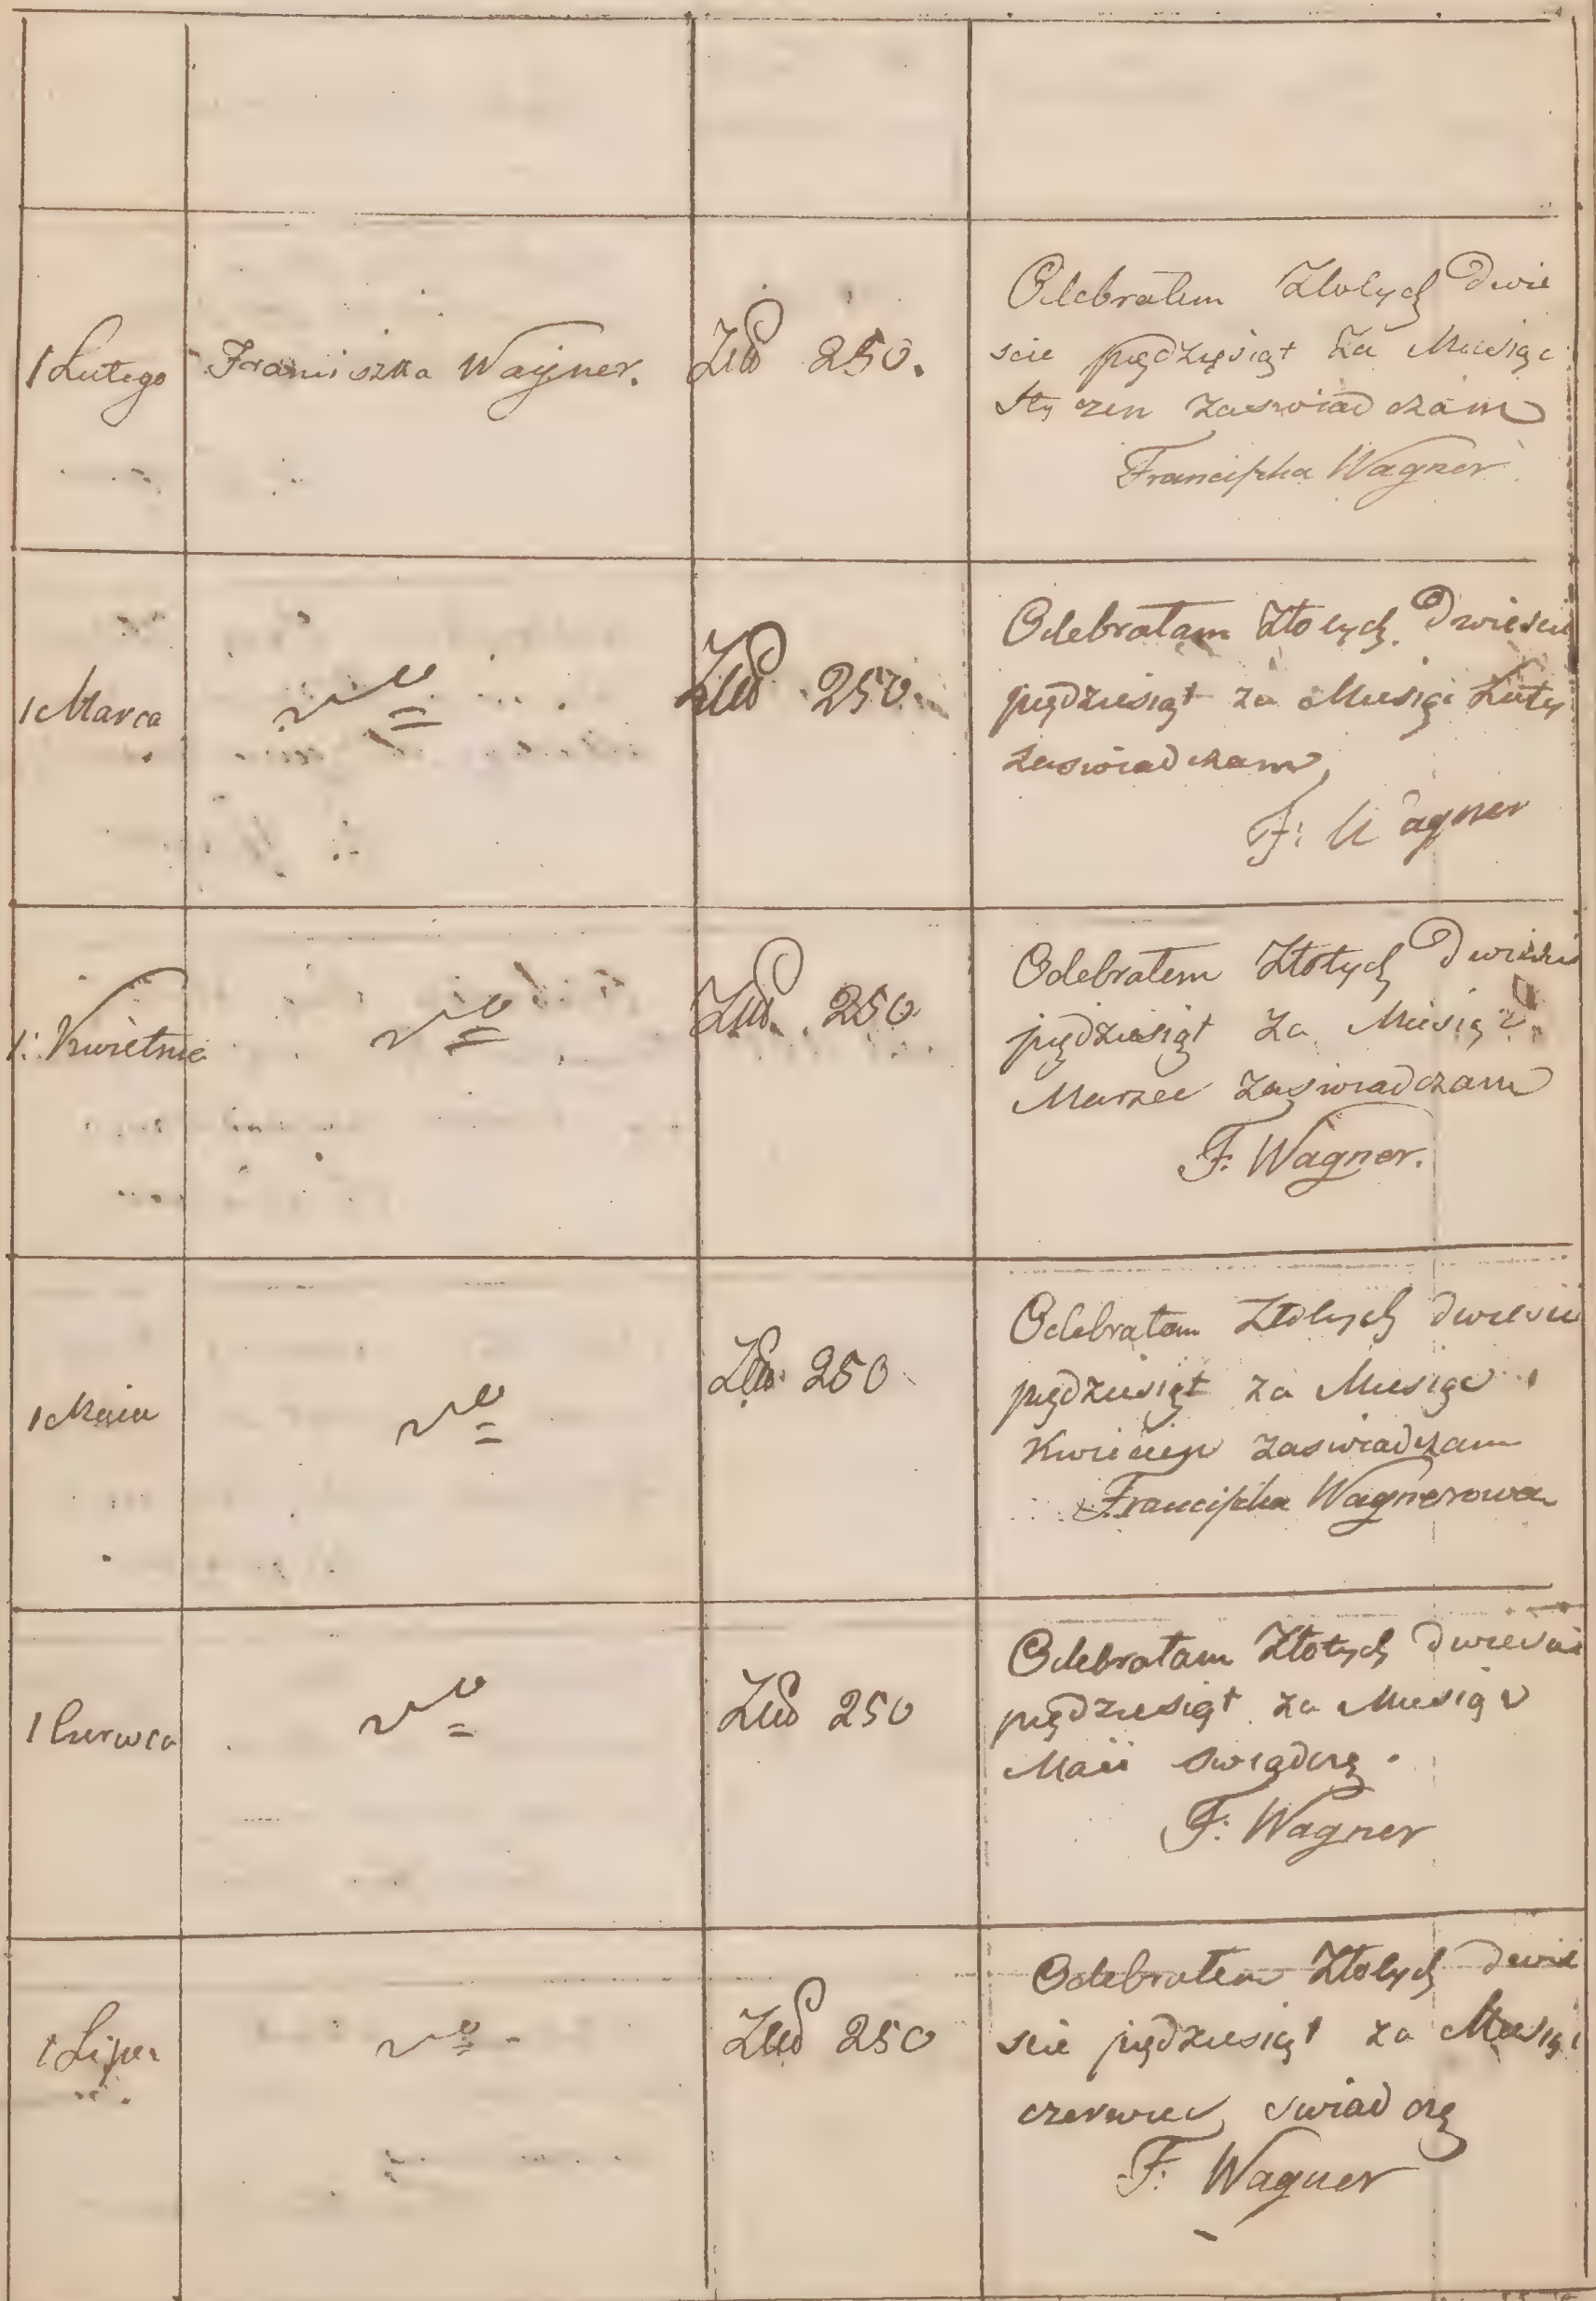 1 Lutego Franciszka Wayner. Złp 250.
Odebrałem Złotych Dwie
scie piędzięsiąt Za Miesiąc
Sty czen zaswiad czam
Franciszka Wagner
1 Marca Złp 250
Odebrałam Złotych Dwiescie
piędziesiąt za Miesiąc Luty
zaswiadczam
F: Wagner
1: Kwietnia Złp 250
Odebrałem Złotych Dwiescie
piędziesiąt Za Miesiąc
Marzec Zaswiadczam
F. Wagner.
1 Maia Złp 250
Odebrałam Złotych dwiescie
piędziesiąt za Miesiąc
Kwiecien zaswiadczam
Franciszka Wagnerowa
1 Czerwca Złp 250
Odebrałam Złotych dwiescie
piędziesiąt za Miesiąc
Maii swiądczę.
F: Wagner
1 Lipca Złp 250
Odebrałem Złotych dwie
scie piędziesiąt za Miesiąc
czerwiec swiad czę
F: Wagner